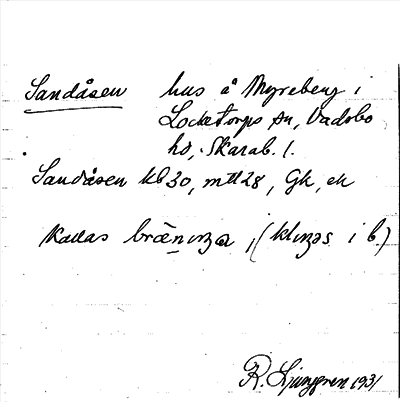 Sandåsen hus å Myreberg i
Locketorps sn, Vadsbo
hd, Skarab. l.
Sandåsen kb30, mtl28, Gk, ek
Kallas bræ̀nıŋa, (klıŋəs i b.)
R. Ljunggren 1931